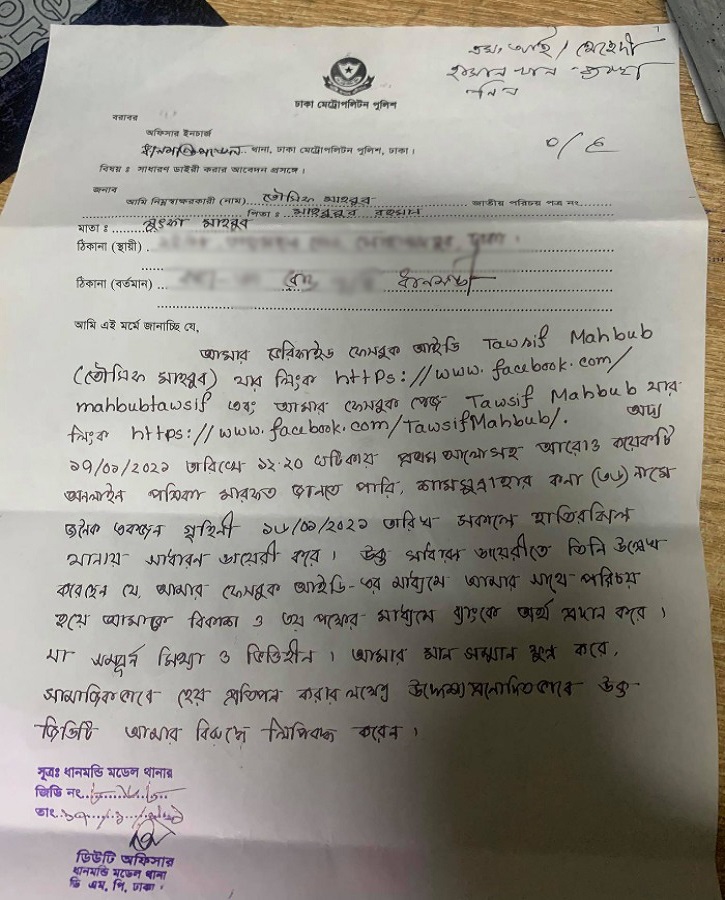 এস, আই / মেহেদী
হাসান
ঢাকা মেট্রোপলিটন পুলিশ
বরাবর
অফিসার ইনচার্জ
ধানমন্ডি মডেল থানা, ঢাকা মেট্রোপলিটন পুলিশ, ঢাকা।
বিষয় : সাধারণ ডাইরী করার আবেদন প্রসঙ্গে।
জনাব
আমি নিম্নস্বাক্ষরকারী (নাম) তৌসিফ মাহবুব জাতীয় পরিচয় পত্র নং
পিতা : মাহবুবুর রহমান
মাতা : লুৎফা মাহবুব
ঠিকানা (স্থায়ী)
ঠিকানা (বর্তমান) ধানমন্ডি
আমি এই মর্মে জানাচ্ছি যে,
আমার ভেরিফাইড ফেসবুক আইডি Tawsif Mahbub
(তৌসিফ মাহবুব) যার লিংক https://www.facebook.com/
mahbubtawsif এবং আমার ফেসবুক পেজ Tawsif Mahbub যার
লিংক https://www.facebook.com/TawsifMahbub/. অদ্য
১৭/০১/২০২১ তারিখে ১২:২০ ঘটিকায় প্রথম আলোসহ আরোও কয়েকটি
অনলাইন পত্রিকা মারফত জানতে পারি, শামসুন্নাহার কনা (৩৬) নামে
জনৈক একজন গৃহিনী ১৬/০১/২০২১ তারিখ সকালে হাতিরঝিল
থানায় সাধারন ডায়েরী করে। উক্ত সাধারন ডায়েরীতে তিনি উল্লেখ
করেছেন যে, আমার ফেসবুক আইডি-এর মাধ্যমে আমার সাথে পরিচয়
হয়ে আমাকে বিকাশ ও ৩য় পক্ষের মাধ্যমে ব্যাংকে অর্থ প্রদান করে।
যা সম্পূর্ন মিথ্যা ও ভিত্তিহীন। আমার মান সম্মান ক্ষুন্ন করে,
সামাজিকভাবে হেয় প্রতিপন্ন করার লক্ষ্যে উদ্দেশ্য প্রনোদিতভাবে উক্ত
জিডিটি আমার বিরুদ্ধে লিপিবদ্ধ করেন।
সূত্রঃ ধানমন্ডি মডেল থানার
জিডি নং
তাং
ডিউটি অফিসার
ধানমন্ডি মডেল থানা
ডি এম, পি, ঢাকা।